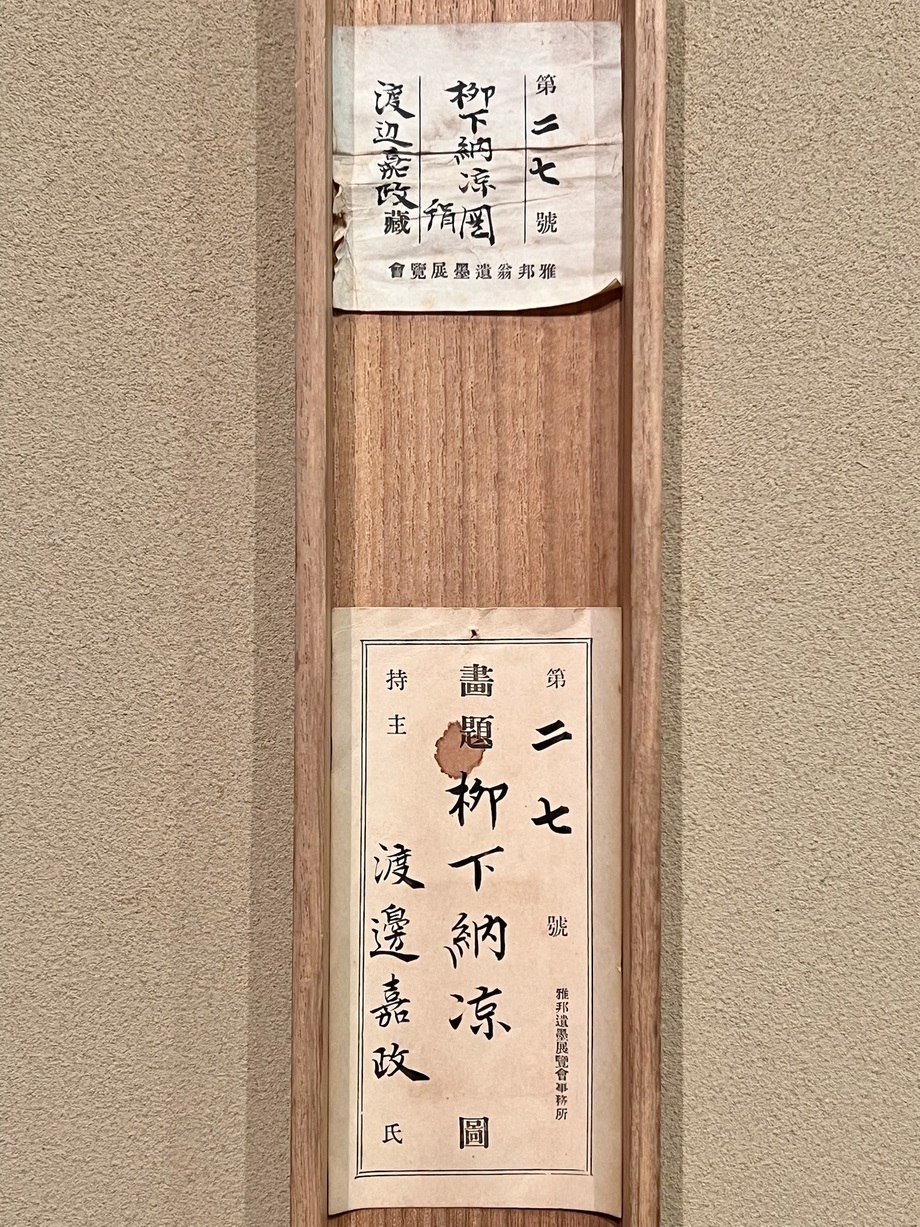 第二七號
柳下納涼図
絹
渡辺嘉政藏
雅邦翁遺墨展覽會
第二七號
雅邦遺墨展覽會事務所
畫題柳下納涼圖
持主渡邊嘉政氏